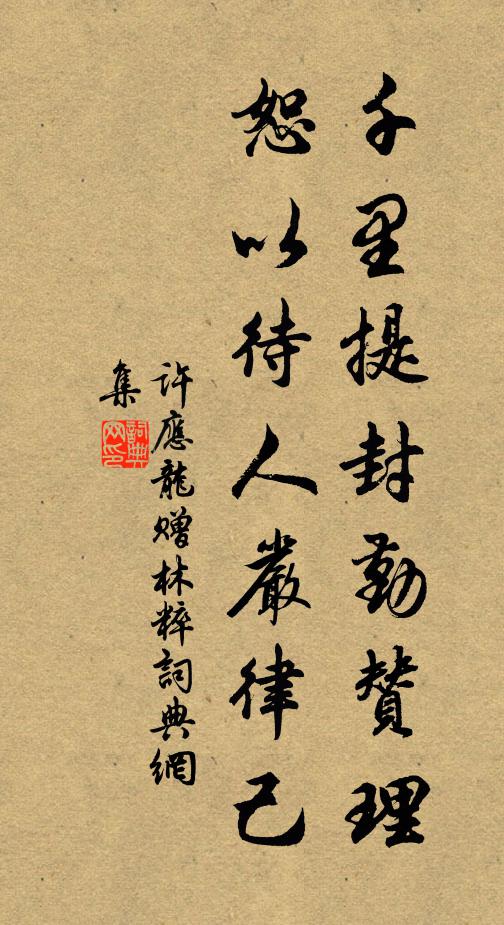 千里提封勤贊理
恕以待人嚴律己
許應龍贈林粹詞典網
集
詞典
网印